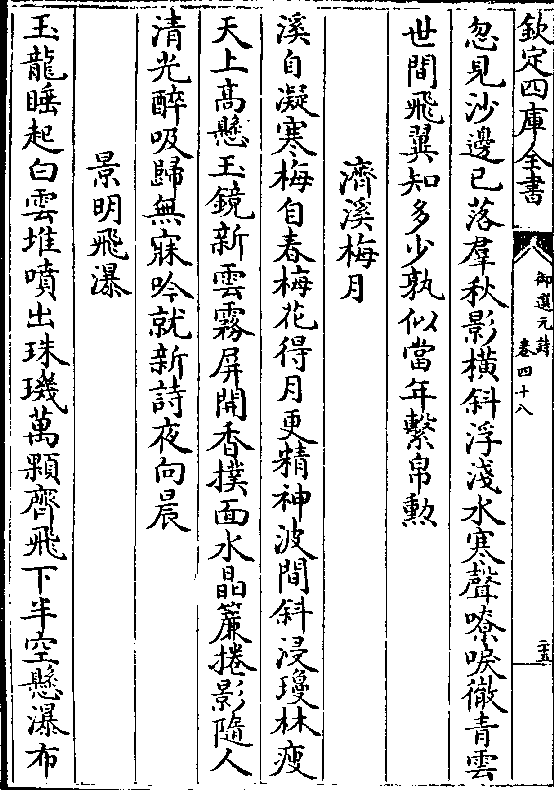 欽定四庫全書
御選元詩
卷四十八
二十五
忽見沙邊已落羣秋影橫斜浮淺水寒聲嘹唳徹青雲
世間飛翼知多少孰似當年繫帛勲
濟溪梅月
溪自凝寒梅自春梅花得月更精神波間斜浸瓊林瘦
天上高懸玉鏡新雲霧屏開香撲面水晶簾捲影隨人
清光醉吸歸無寐吟就新詩夜向晨
景明飛瀑
玉龍睡起白雲堆噴出珠璣萬顆齊飛下半空懸瀑布